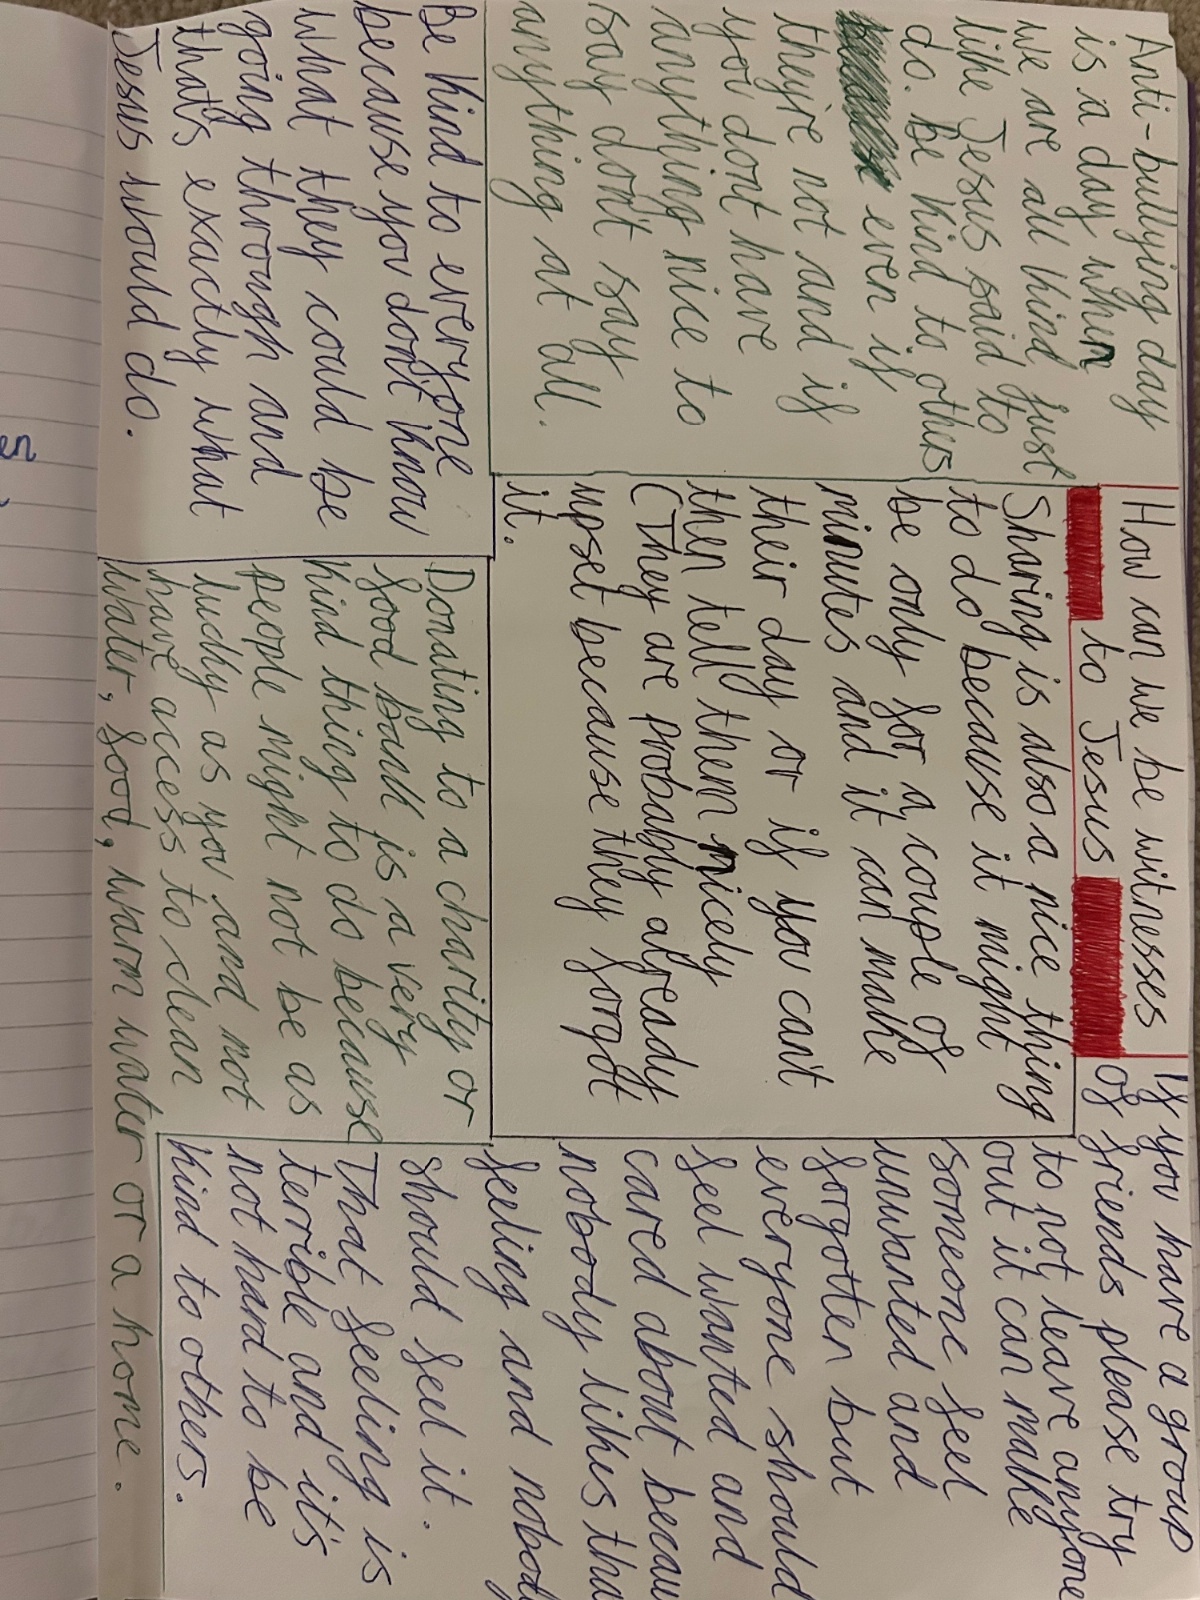 How can we be witnesses
to Jesus
Anti-bullying day
is a day when
we are all kind just
like Jesus said to
do. be kind to others
even if
they're not and if
you don't have
anything nice to
say don't say
anything at all.
Sharing is also a nice thing
to do because it might
be only for a couple of
minutes and it can make
their day or if you can't
then tell them nicely
(They are probably already
upset because they forgot
it.
If you have a group
of friends please try
to not leave anyone
out it can make
someone feel
unwanted and
forgotten but
everyone should
feel wanted and
cared about becau
nobody likes tha
feeling and nobody
should feel it.
That feeling is
terrible and it's
not hard to be
kind to others.
Be kind to everyone
because you don't know
what they could be
going through and
that's exactly what
Jesus would do.
Donating to a charity or
food bank is a very
kind thing to do because
people might not be as
lucky as you and not
have access to clean
water, food, warm water or a home.
en